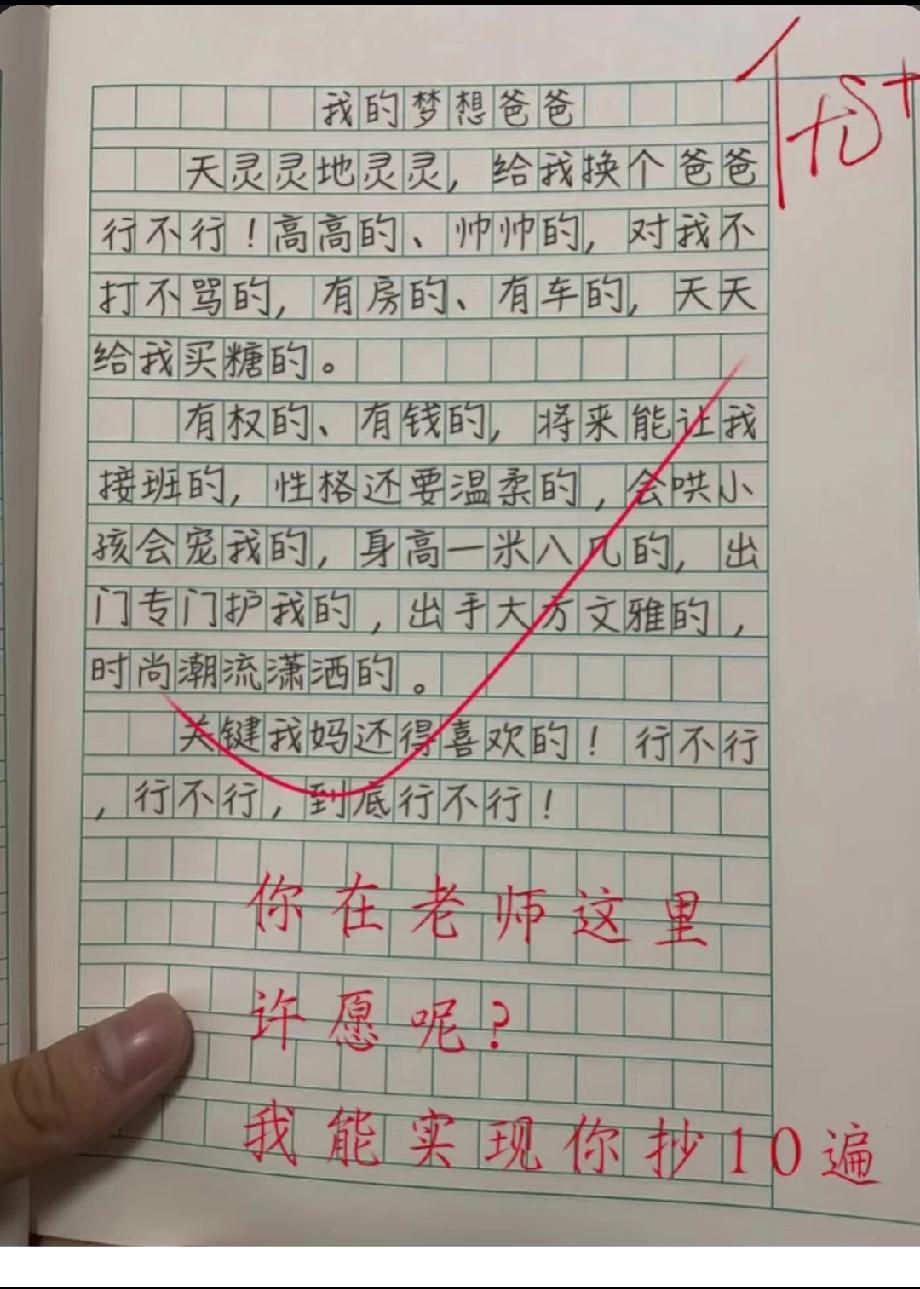 我的梦想爸爸
天灵灵地灵灵，给我换个爸爸
行不行！高高的、帅帅的，对我不
打不骂的，有房的、有车的，天天
给我买糖的。
有权的、有钱的，将来能让我
接班的，性格还要温柔的，会哄小
孩会宠我的，身高一米八几的，出
门专门护我的，出手大方文雅的，
时尚潮流潇洒的。
关键我妈还得喜欢的！行不行
，行不行，到底行不行！
你在老师这里
许愿呢？
我能实现你抄10遍